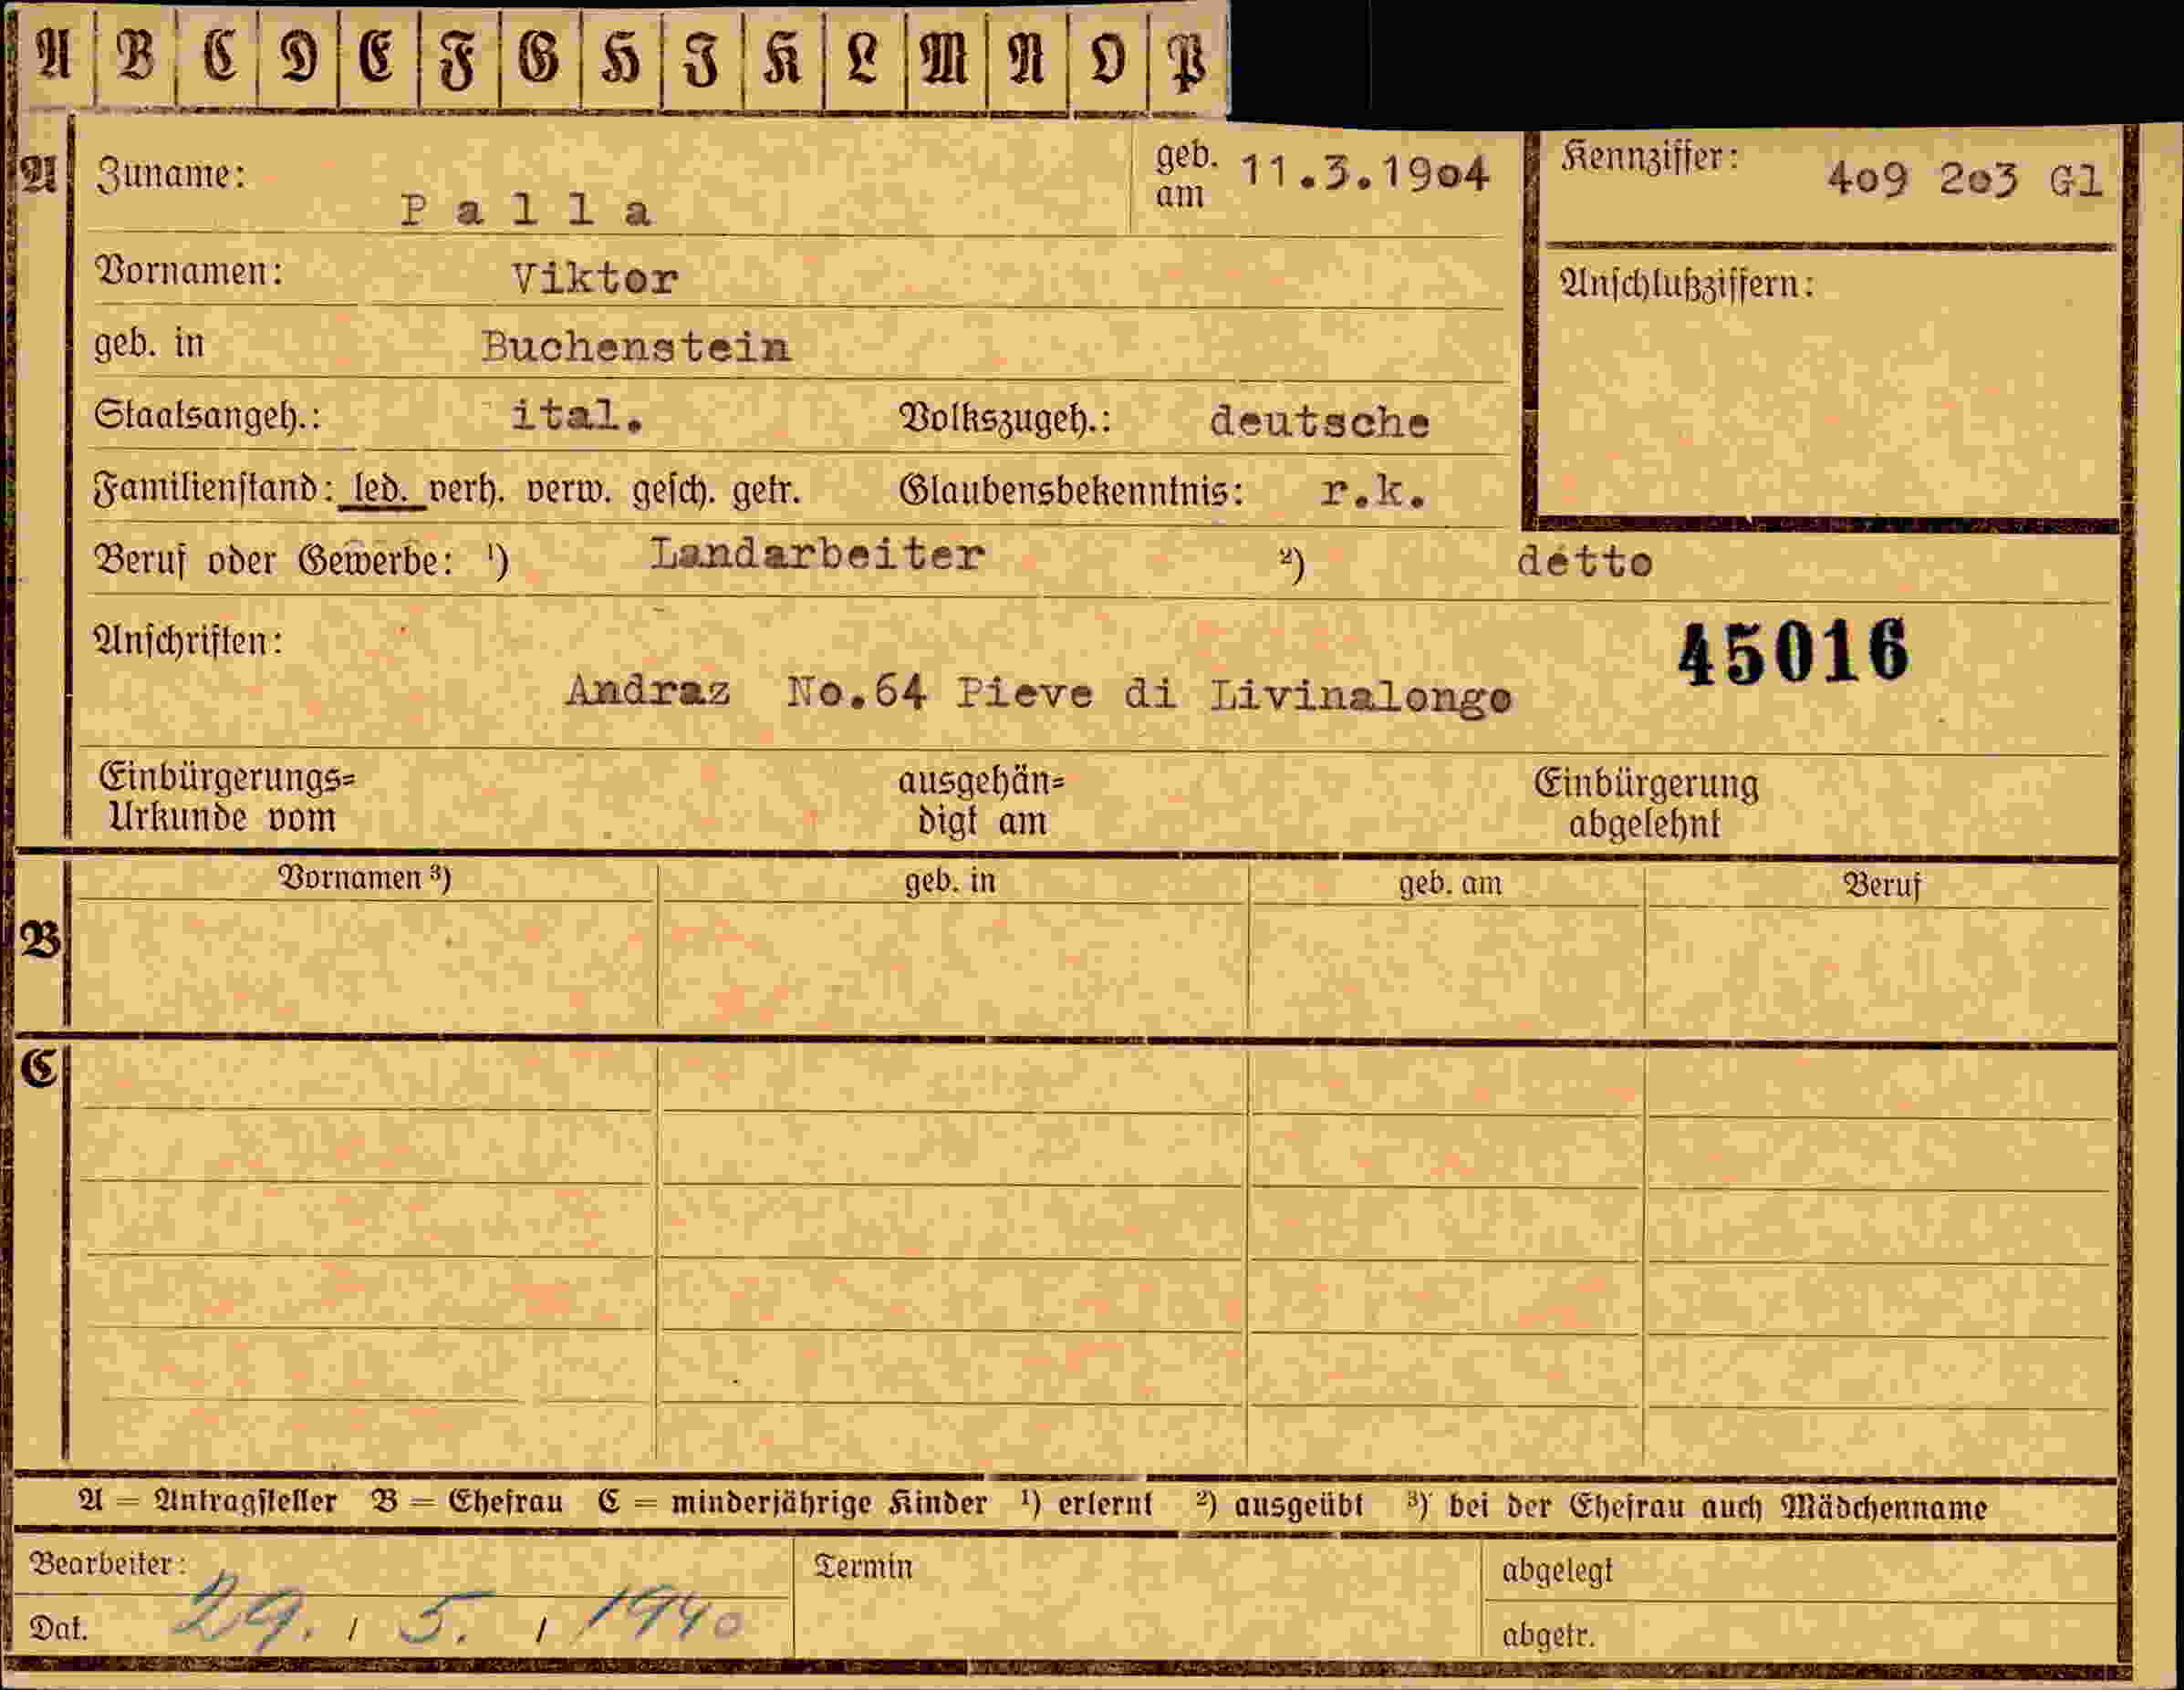 A B C D E F G H I K L M N O P
A Zuname: Palla geb. am 11.3.1904 Kennziffer: 409 203 Gl
Vornamen: Viktor Anschlußziffern:
geb. in Buchenstein
Staatsangeh.: ital. Volkszugeh.: deutsche
Familienstand: led. verh. verw. gesch. getr. Glaubensbekenntnis: r.k.
Beruf oder Gewerbe: ¹) Landarbeiter ²) detto
Anschriften: 45016
Andraz No.64 Pieve di Livinalongo
Einbürgerungs= ausgehän= Einbürgerung
Urkunde vom digt am abgelehnt
Vornamen ³) geb. in geb. am Beruf
B
C
A = Antragsteller B = Ehefrau C = minderjährige Kinder ¹) erlernt ²) ausgeübt ³) bei der Ehefrau auch Mädchenname
Bearbeiter: Termin abgelegt
Dat. 29. / 5. / 1940 abgetr.